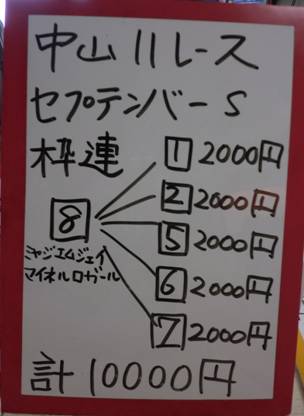 中山11レース
セプテンバーS
枠連
1 2000円
2 2000円
8
5 2000円
ミヤジエムジェイ
マイネルロガール
6 2000円
7 2000円
計10000円